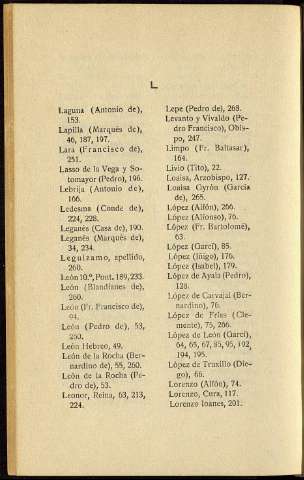 L
Laguna (Antonio de),
153.
Lapilla (Marqués de),
46, 187, 197.
Lara (Francisco de),
251.
Lasso de la Vega y So-
tomayor (Pedro), 196.
Lebrija (Antonio de),
166.
Ledesma (Conde de),
224, 228.
Leganés (Casa de), 190.
Leganés (Marqués de),
34, 234.
Leguizamo, apellido,
260.
León 10.º, Pont. 189, 233.
León (Blandianes de),
260.
León (Fr. Francisco de),
94.
León (Pedro de), 53,
260.
León Hebreo, 49.
León de la Rocha (Ber-
nardino de), 55, 260.
León de la Rocha (Pe-
dro de), 53.
Leonor, Reina, 63, 213,
224.
Lepe (Pedro de), 268.
Levanto y Vivaldo (Pe-
dro Francisco), Obis-
po, 247.
Limpo (Fr. Baltasar),
164.
Livio (Tito), 22.
Loaisa, Arzobispo, 127.
Loaisa Gyrón (García
de), 265.
López (Alfón), 266.
López (Alfonso), 76.
López (Fr. Bartolomé),
63.
López (Garcí), 85.
López (Iñigo), 176.
López (Isabel), 179.
López de Ayala (Pedro),
128.
López de Carvajal (Ber-
nardino), 76.
López de Frías (Cle-
mente), 75, 266.
López de León (Garci),
64, 65, 67, 85, 95, 192,
194, 195.
López de Truxillo (Die-
go), 66.
Lorenzo (Alfón), 74.
Lorenzo, Cura, 117.
Lorenzo Ioanes, 201.